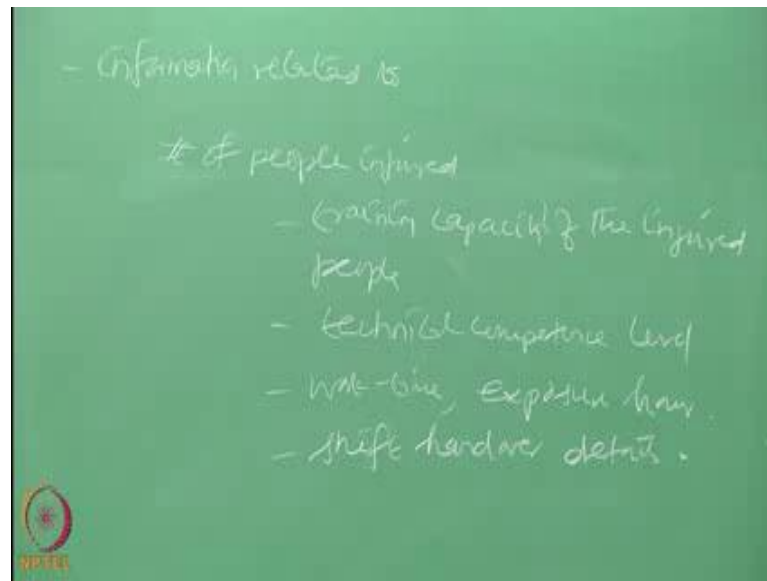 - Information related to
# of people injured
- training capacity of the injured
people
- technical competence level
- work-time, Exposure hour.
- shift handover details.
NPTEL